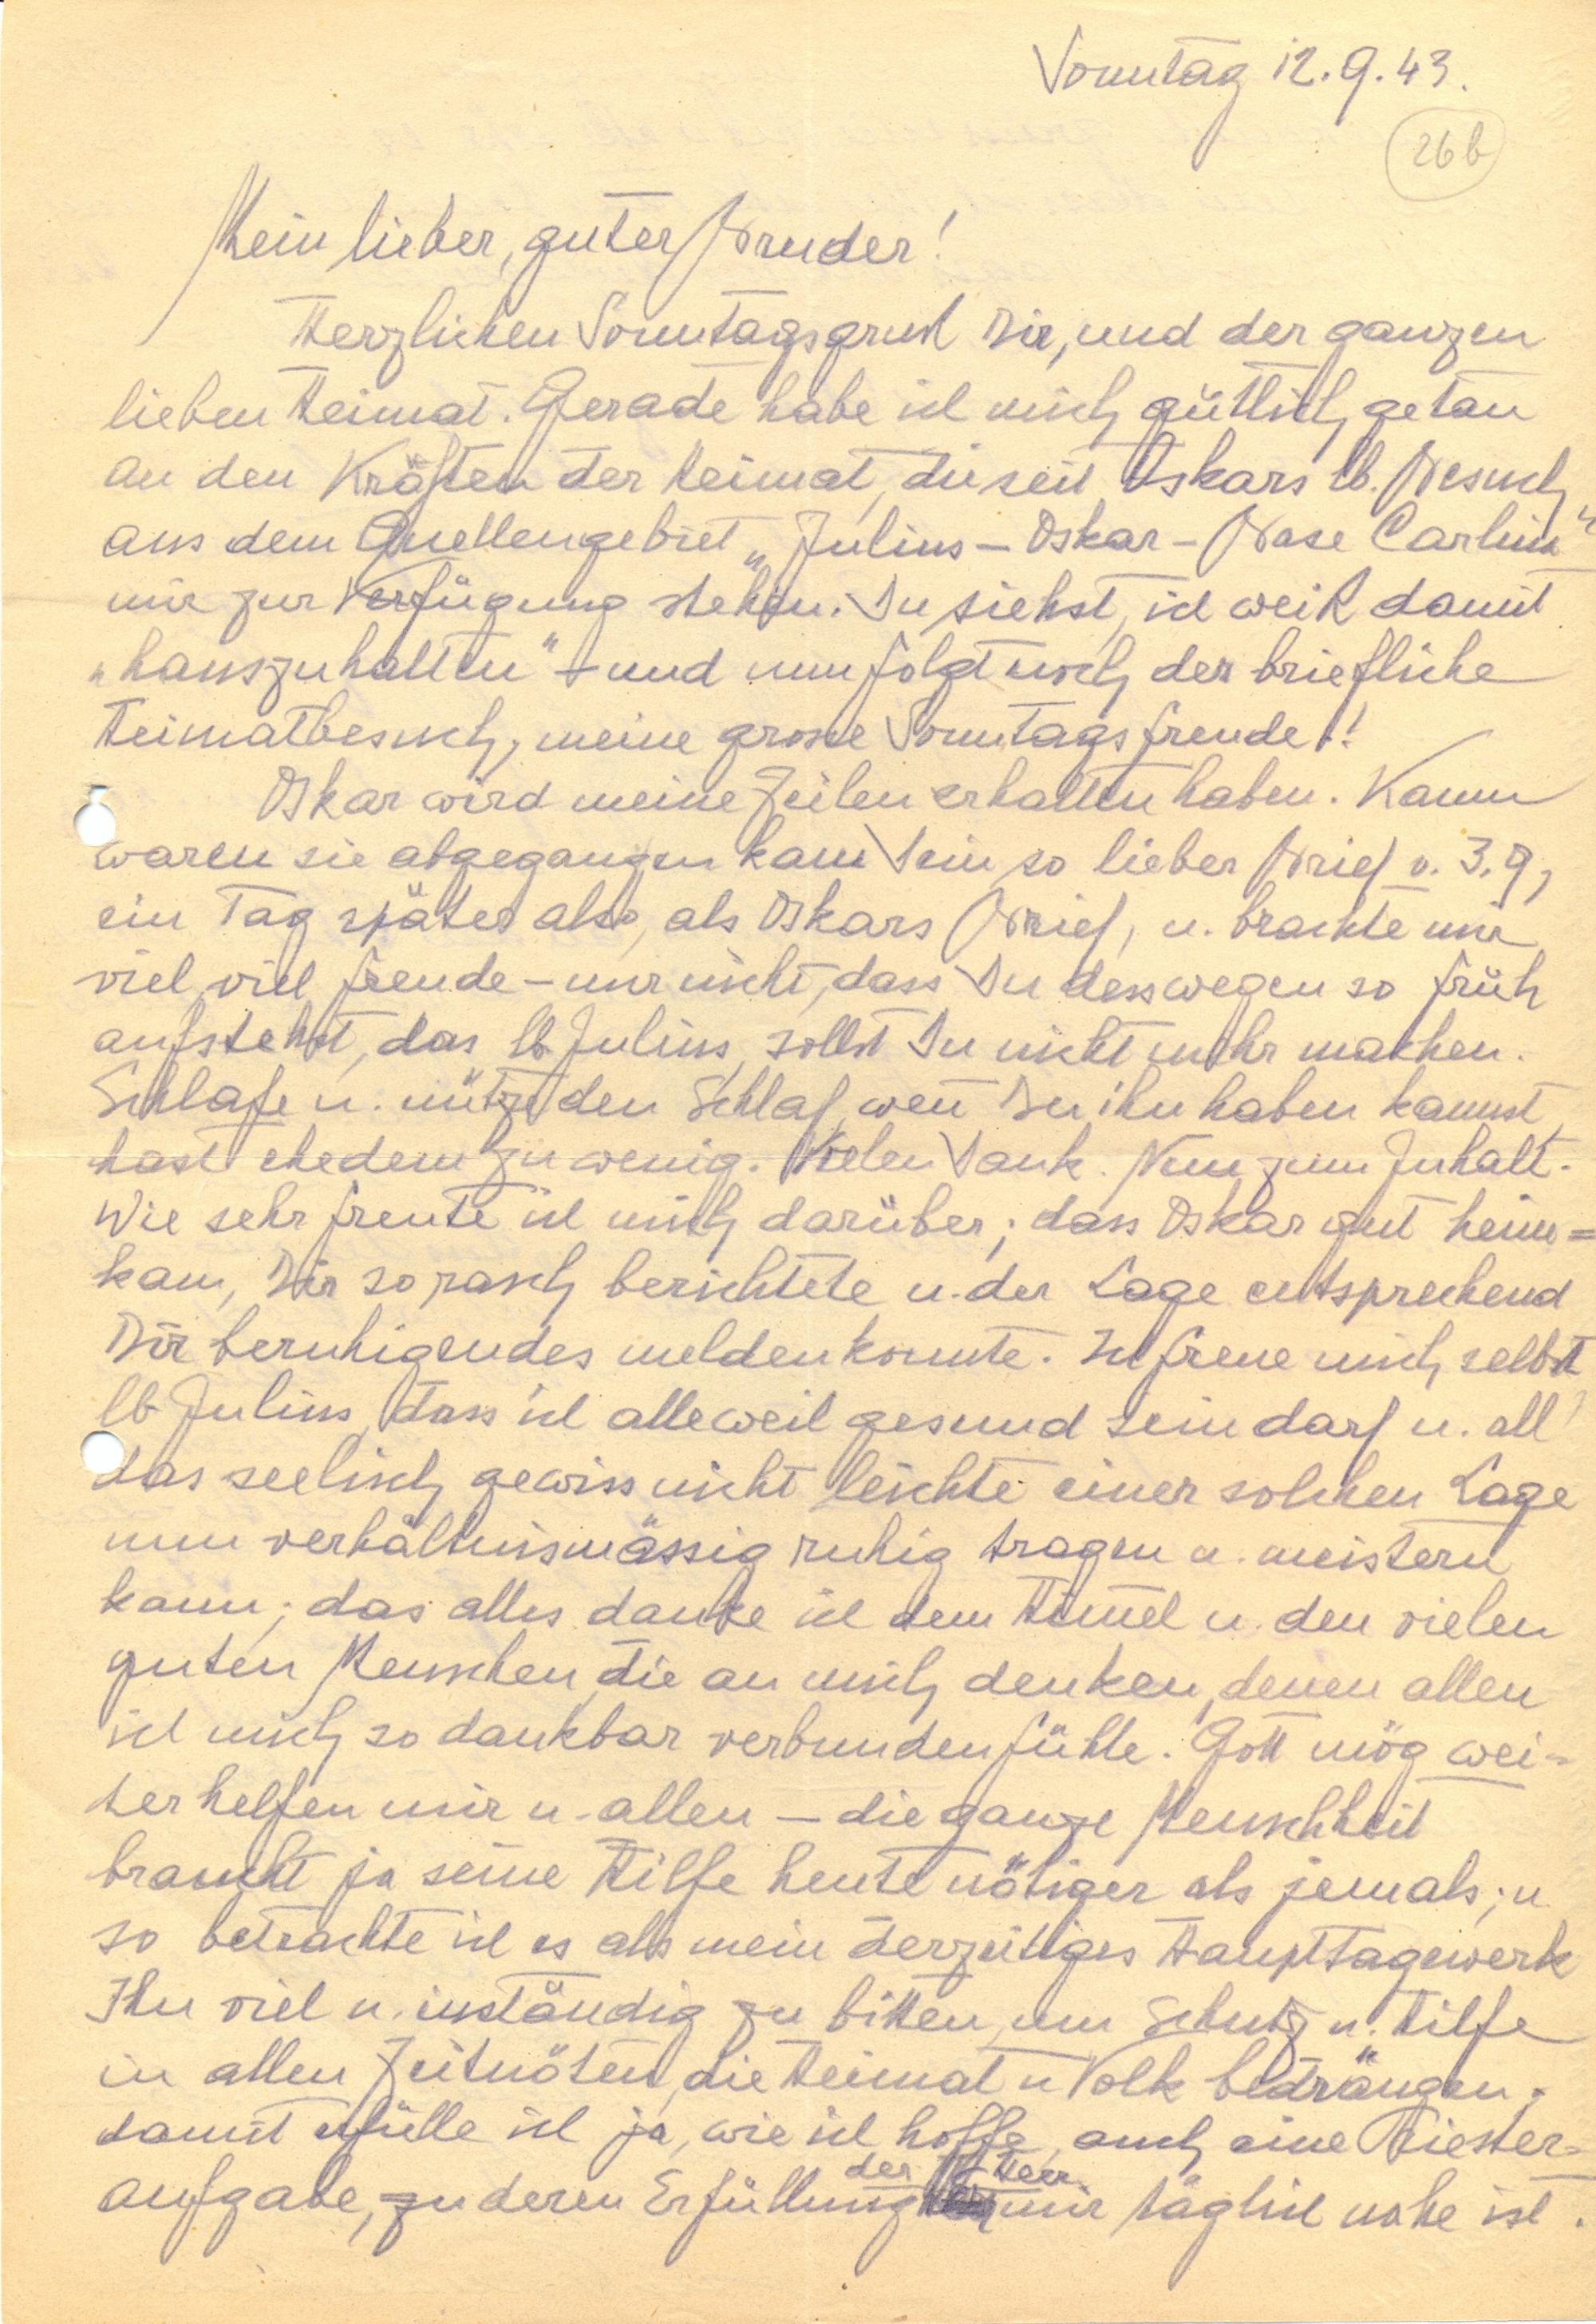 Sonntag 12.9.43.
26b
Mein lieber, guter Bruder!
Herzlichen Sonntagsgruß Dir, und der ganzen
lieben Heimat. Gerade habe ich mich gütlich getan
an den Kräften der Heimat, die seit Oskars lb. Besuch
aus dem Quellengebiet „Julius – Oskar – Base Carlina“
mir zur Verfügung stehen. Du siehst, ich weiß damit
„hauszuhalten“ – und nun folgt noch der briefliche
Heimatbesuch, meine grosse Sonntagsfreude!!
Oskar wird meine Zeilen erhalten haben. Kaum
waren sie abgegangen kam Dein so lieber Brief v. 3.9,
ein Tag später also, als Oskars Brief, u. brachte mir
viel, viel Freude – nur nicht, dass Du desswegen so früh
aufstehst, das lb Julius, sollst Du nicht mehr machen.
Schlafe u. nütze den Schlaf, weñ Du ihn haben kannst,
hast ehedem zu wenig. Vielen Dank. Nun zum Inhalt.
Wie sehr freute ich mich darüber; dass Oskar gut heim=
kam, Dir so rasch berichtete u. der Lage entsprechend
Dir beruhigendes melden konnte. Ich freue mich selbst
lb Julius, dass ich alleweil gesund sein darf u. all'
das seelisch gewiss nicht leichte einer solchen Lage
nun verhältnismässig ruhig tragen u. meistern
kann; das alles danke ich dem Him̄el u. den vielen
guten Menschen, die an mich denken, denen allen
ich mich so dankbar verbunden fühle. Gott mög wei=
ter helfen mir u. allen – die ganze Menschheit
braucht ja seine Hilfe heute nötiger als jemals; u.
so betrachte ich es als mein derzeitiges Haupttagewerk
Ihn viel u. inständig zu bitten um Schutz u. Hilfe
in allen Zeitnöten, die Heimat u Volk bedrängen;
damit erfülle ich ja, wie ich hoffe, auch eine Priester=
aufgabe, zu deren Erfüllung der Herr mir täglich nahe ist.